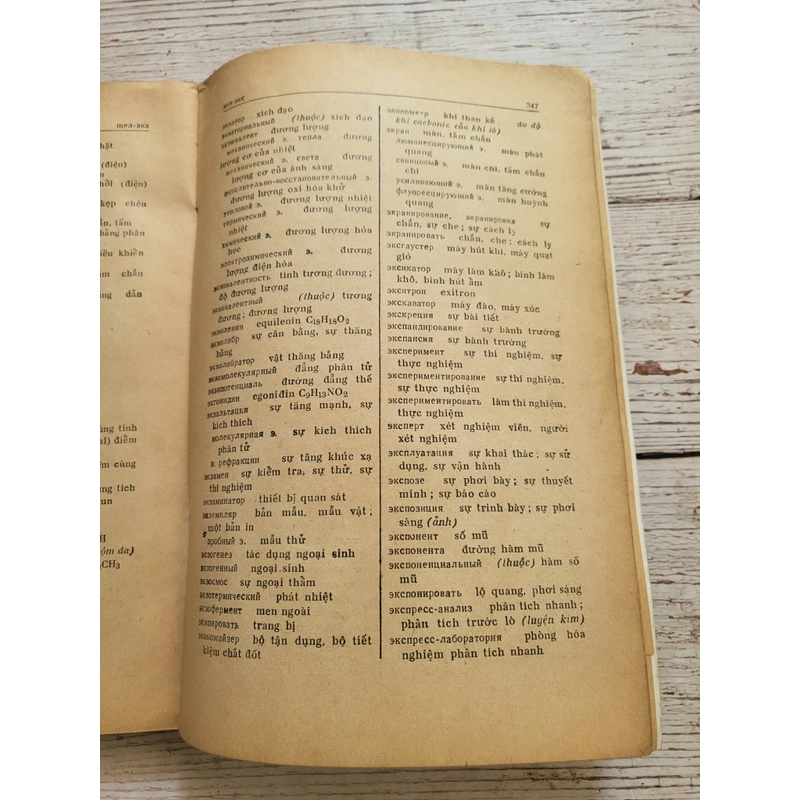 шел-экв
hặt
(điện)
hồi (điện)
kẹp chén
ắn. tấm
bảng phân
iều khiển
ám chắn
ng dẫn
ùng tính
điểm
ìm cùng
ng tích
un
H
ốm da)
CH3
экв-экс 247
экватор xích đạo
экваториальный (thuộc) xích đạo
эквивалент đương lượng
механический э. тепла đương
lượng cơ của nhiệt
механический э. света đương
lượng cơ của ánh sáng
окислительно-восстановительный э.
đương lượng oxi hóa khử
тепловой э. đương lượng nhiệt
термический э. đương lượng
nhiệt
химический э. đương lượng hóa
học
электрохимический э. đương
lượng điện hóa
эквивалентность tính tương đương;
độ đương lượng
эквивалентный (thuộc) tương
đương; đương lượng
эквиленин equilenin C18H18O2
эквилибр sự cân bằng, sự thăng
bằng
эквилибратор vật thăng bằng
эквимолекулярный đẳng phân tử
эквипотенциаль đường đẳng thế
экгонидин egoniđin C9H13NO2
экзальтация sự tăng mạnh, sự
kích thích
молекулярная э. sự kích thích
phân tử
э. рефракции sự tăng khúc xạ
экзамен sự kiểm tra, sự thử, sự
thí nghiệm
экзаминатор thiết bị quan sát
экземпляр bản mẫu, mẫu vật;
một bản in
пробный э. mẫu thử
экзогенез tác dụng ngoại sinh
экзогенный ngoại sinh
экзосмос sự ngoại thấm
экзотермический phát nhiệt
экзофермент men ngoài
экипировать trang bị
экономайзер bộ tận dụng, bộ tiết
kiệm chất đốt
эконометр khí than kế, do độ
khí cacbonic của khí lò)
экран màn, tấm chắn
люминесцирующий э. màn phát
quang
свинцовый э. màn chì, tấm chắn
chì
усиливающий э. màn tăng cường
флуоресцирующий э. màn huỳnh
quang
экранирование, экранировка sự
chắn, sự che; sự cách ly
экранировать chắn, che; cách ly
эксгаустер máy hút khí, máy quạt
gió
эксикатор máy làm khô; bình làm
khô, bình hút ẩm
экситрон exitron
экскаватор máy đào, máy xúc
экскреция sự bài tiết
экспандирование sự bành trướng
экспансия sự bành trướng
эксперимент sự thí nghiệm, sự
thực nghiệm
экспериментирование sự thí nghiệm,
sự thực nghiệm
экспериментировать làm thí nghiệm,
thực nghiệm
эксперт xét nghiệm viên, người
xét nghiệm
эксплуатация sự khai thác; sự sử
dụng, sự vận hành
экспозе sự phơi bày; sự thuyết
minh; sự báo cáo
экспозиция sự trình bày; sự phơi
sáng (ảnh)
экспонент số mũ
экспонента đường hàm mũ
экспоненциальный (thuộc) hàm số
mũ
экспонировать lộ quang, phơi sáng
экспресс-анализ phân tích nhanh;
phân tích trước lò (luyện kim)
экспресс-лаборатория phòng hóa
nghiệm phân tích nhanh